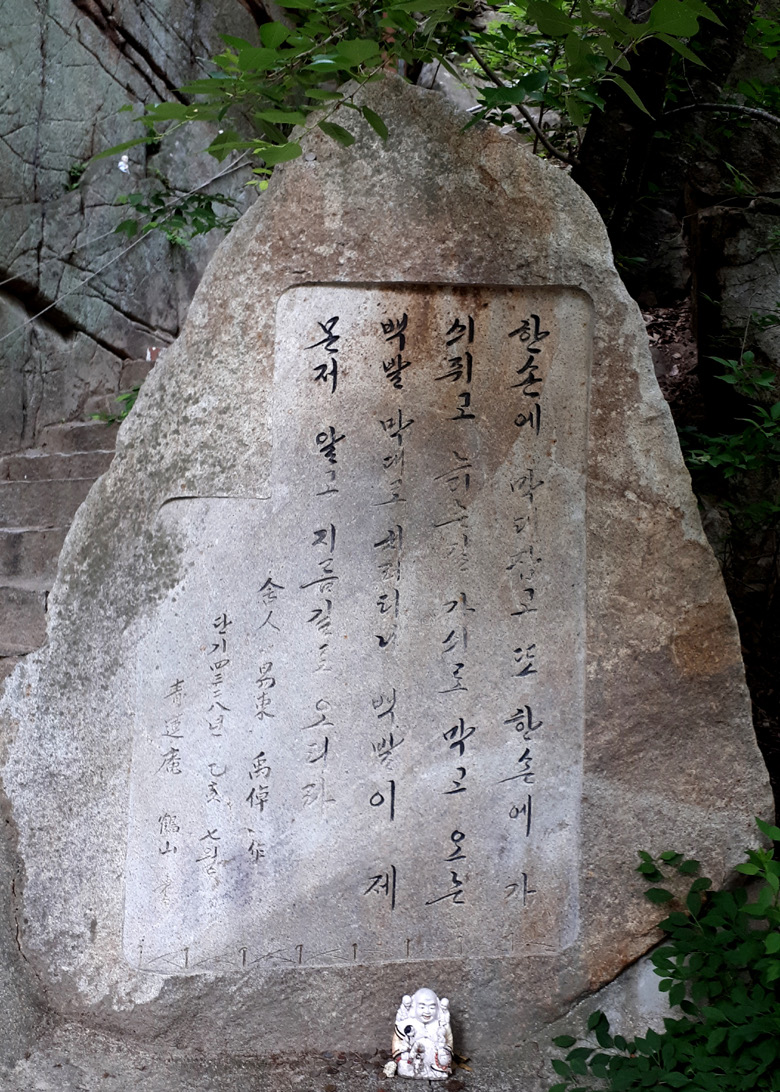 한손에 막대잡고 또 한손에 가
싀쥐고 늙는길 가싀로 막고 오는
백발 막대로 치려터니 백발이 제
몬저 알고 지름길로 오더라
舍人 易東 禹倬 作
단기四三二八년 乙亥 七월
靑蓮庵 鶴山 書